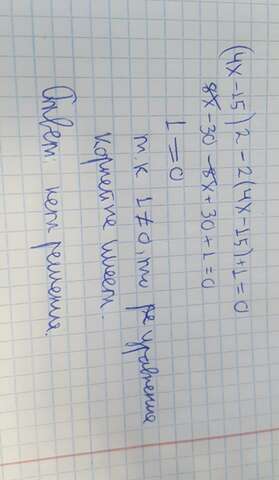 (4x-15)2-2(4x-15)+1=0
8x-30-8x+30+1=0
1=0
т.к 1≠0, то ре уравнение
корней не имеет.
Ответ: нет решения.